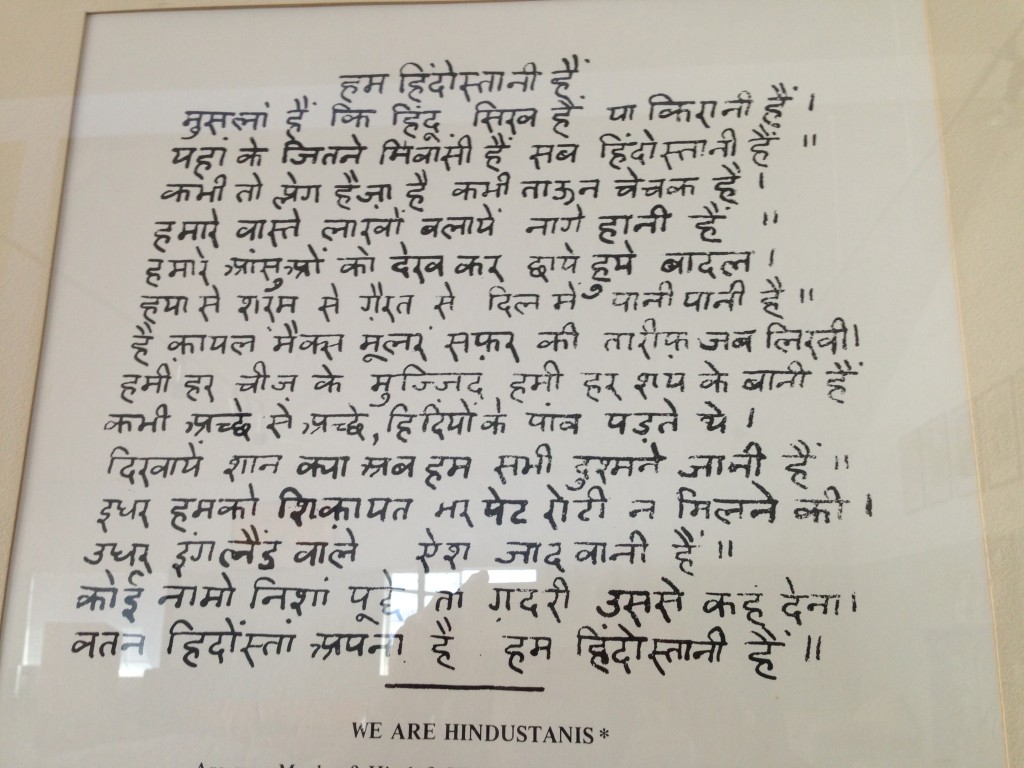 हम हिंदोस्तानी हैं
मुसलां हैं कि हिंदू, सिख हैं या किरानी हैं ।
यहां के जितने निवासी हैं सब हिंदोस्तानी हैं ॥
कभी तो प्लेग हैज़ा है कभी ताऊन चेचक है ।
हमारे वास्ते लाखों बलायें नागे हानी हैं ॥
हमारे आंसुओं को देख कर छाये हुये बादल ।
हया से शरम से ग़ैरत से दिल में पानी पानी है ॥
हैं क़ायल मैक्स मूलर सफ़र की तारीफ़ जब लिखी।
हमी हर चीज़ के मुज्जिद, हमी हर शय के बानी हैं
कभी अच्छे से अच्छे, हिंदियों के पांव पड़ते थे ।
दिखायें शान क्या अब हम सभी दुशमने जानी हैं ॥
इधर हमको शिक़ायत भर पेट रोटी न मिलने की ।
उधर इंगलैंड वाले ऐश जादवानी हैं ॥
कोई नामो निशां पूछे तो ग़दरी उससे कह देना।
वतन हिदोंस्तां अपना है हम हिंदोस्तानी हैं ॥
WE ARE HINDUSTANIS*